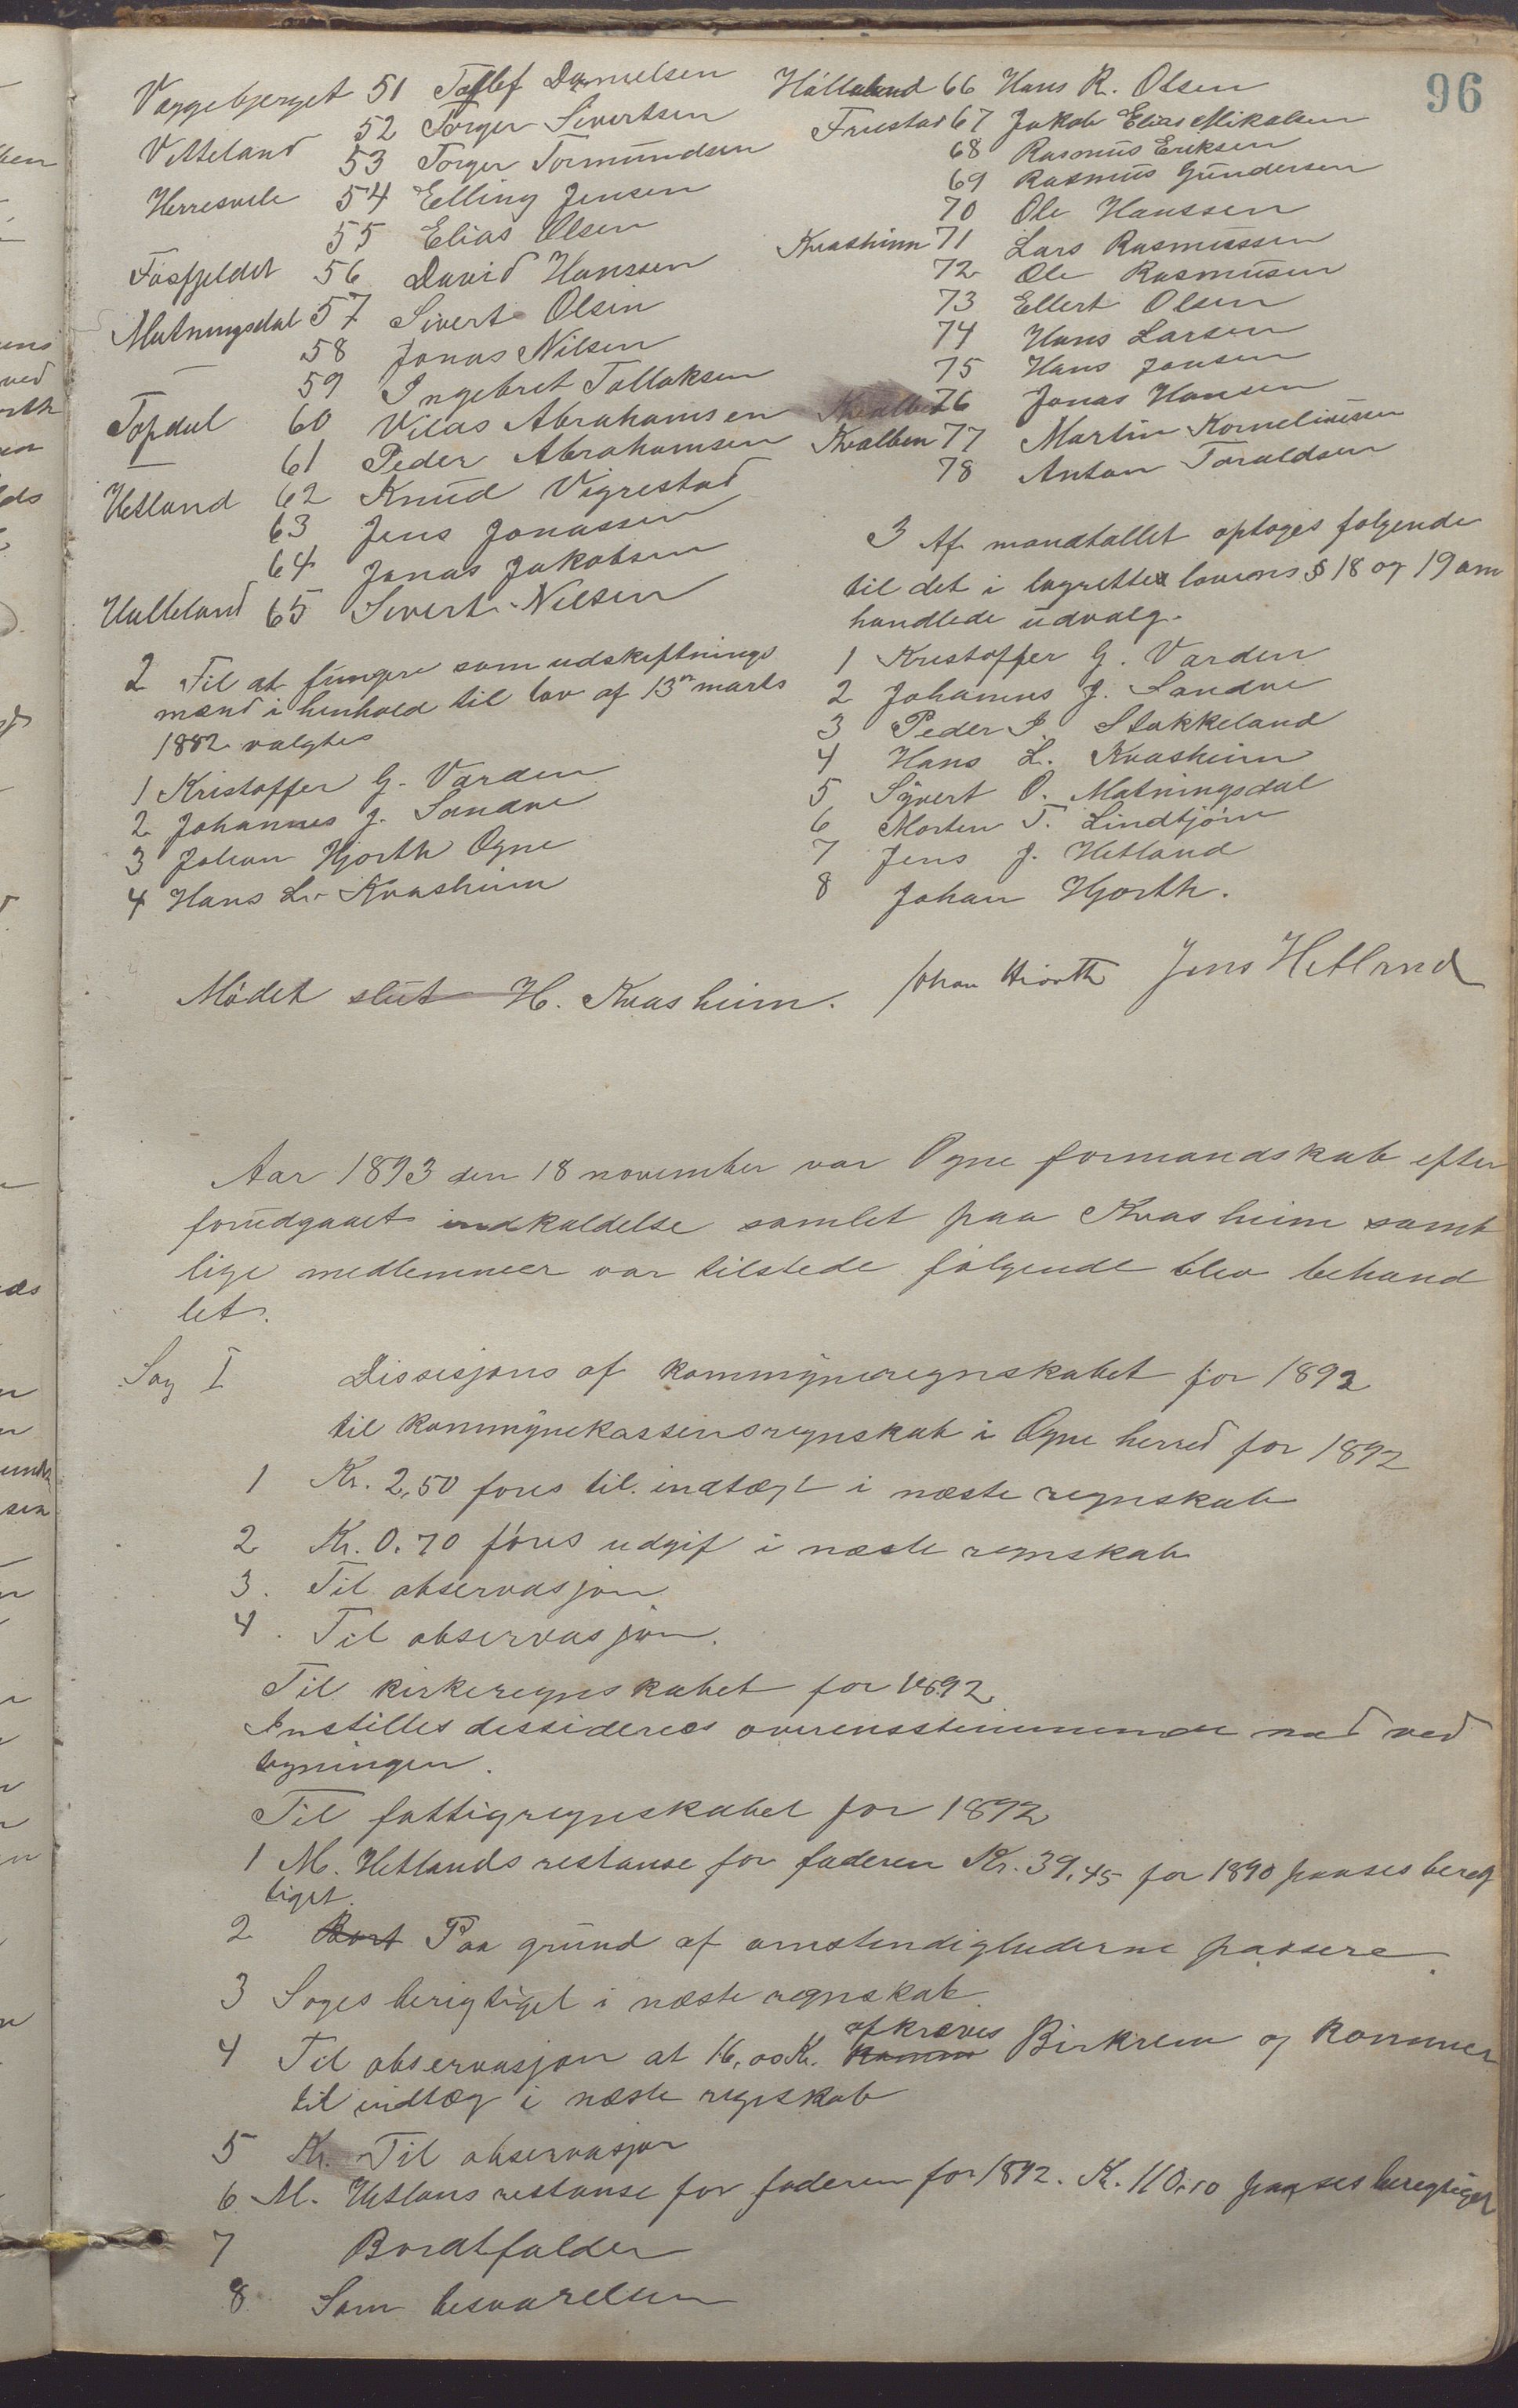 96
Væggebjerget 51 Tollef Danielsen
52 Torger Sivertsen
Vetteland 53 Torger Tormundsen
Herresvele 54 Elling Jensen
55 Elias Olsen
Fosfjeldet 56 David Hanssen
Matningsdal 57 Sivert Olsen
— 58 Jonas Nilsen
59 Ingebret Tollaksen
Topdal 60 Vilas Abrahamsen
— 61 Peder Abrahamsen
Hetland 62 Knud Vigrestad
63 Jens Jonassen
64 Jonas Jakobsen
Hulleland 65 Sivert Nilsen
2 Til at fungere som udskiftnings
mænd i henhold til lov af 13n marts
1882 valgtes
1 Kristoffer G. Varden
2 Johannes J. Sandve
3 Johan Hjorth Ogne
4 Hans L. Kvasheim
Hålleland 66 Hans R. Olsen
Fruestad 67 Jakob Elias Mikalsen
68 Rasmus Eriksen
69 Rasmus Gundersen
70 Ole Hanssen
Kvasheim 71 Lars Rasmussen
72 Ole Rasmusen
73 Ellert Olsen
74 Hans Larsen
75 Hans Jonsen
Kvalben 76 Jonas Hansen
Kvalben 77 Martin Korneliussen
78 Anton Taraldsen
3 Af mandtallet optoges følgende
til det i lagrette lovens § 18 og 19 om
handlede udvalg.
1 Kristoffer G. Varden
2 Johannes J. Sandve
3 Peder I. Stokkeland
4 Hans L. Kvasheim
5 Syvert O. Matningsdal
6 Morten T. Lindtjörn
7 Jens J. Hetland
8 Johan Hjorth.
Mødet slut H. Kvasheim. Johan Hiorth Jens Hetland
Aar 1893 den 18 november var Ogne formandskab efter
forudgaaet indkaldelse samlet paa Kvasheim samt
lige medlemmer var tilstede følgende blev behand
let.
Sag I Dissisjons af kommyneregnskabet for 1892
til kommynekassensregnskab i Ogne herred for 1892
1 Kr. 2,50 føres til indtægt i næste regnskab
2 Kr. 0.70 føres udgif i næste regnskab
3. Til observasjon
4. Til observasjon.
Til kirkeregnskabet for 1892
Instilles dessideres overensstemmende med ved
tegningen.
Til fattigregnskabet for 1892
1 M. Hetlands restanse for faderen Kr. 39,45 for 1890 paases berig
tiget.
2 Bort Paa grund af omstendighederne passere.
3 Søges berigtiget i næste regnskab
4 Til observasjon at 16,00 Kr. afkræves Birkrem og kommer
til indtæg i næste regnskab
5 Kr. Til observasjon
6 M. Hetlans restanse for faderen for 1892. Kr. 110.10 paases beregtiget
7 Bortfalder
8 Som besvarelsen